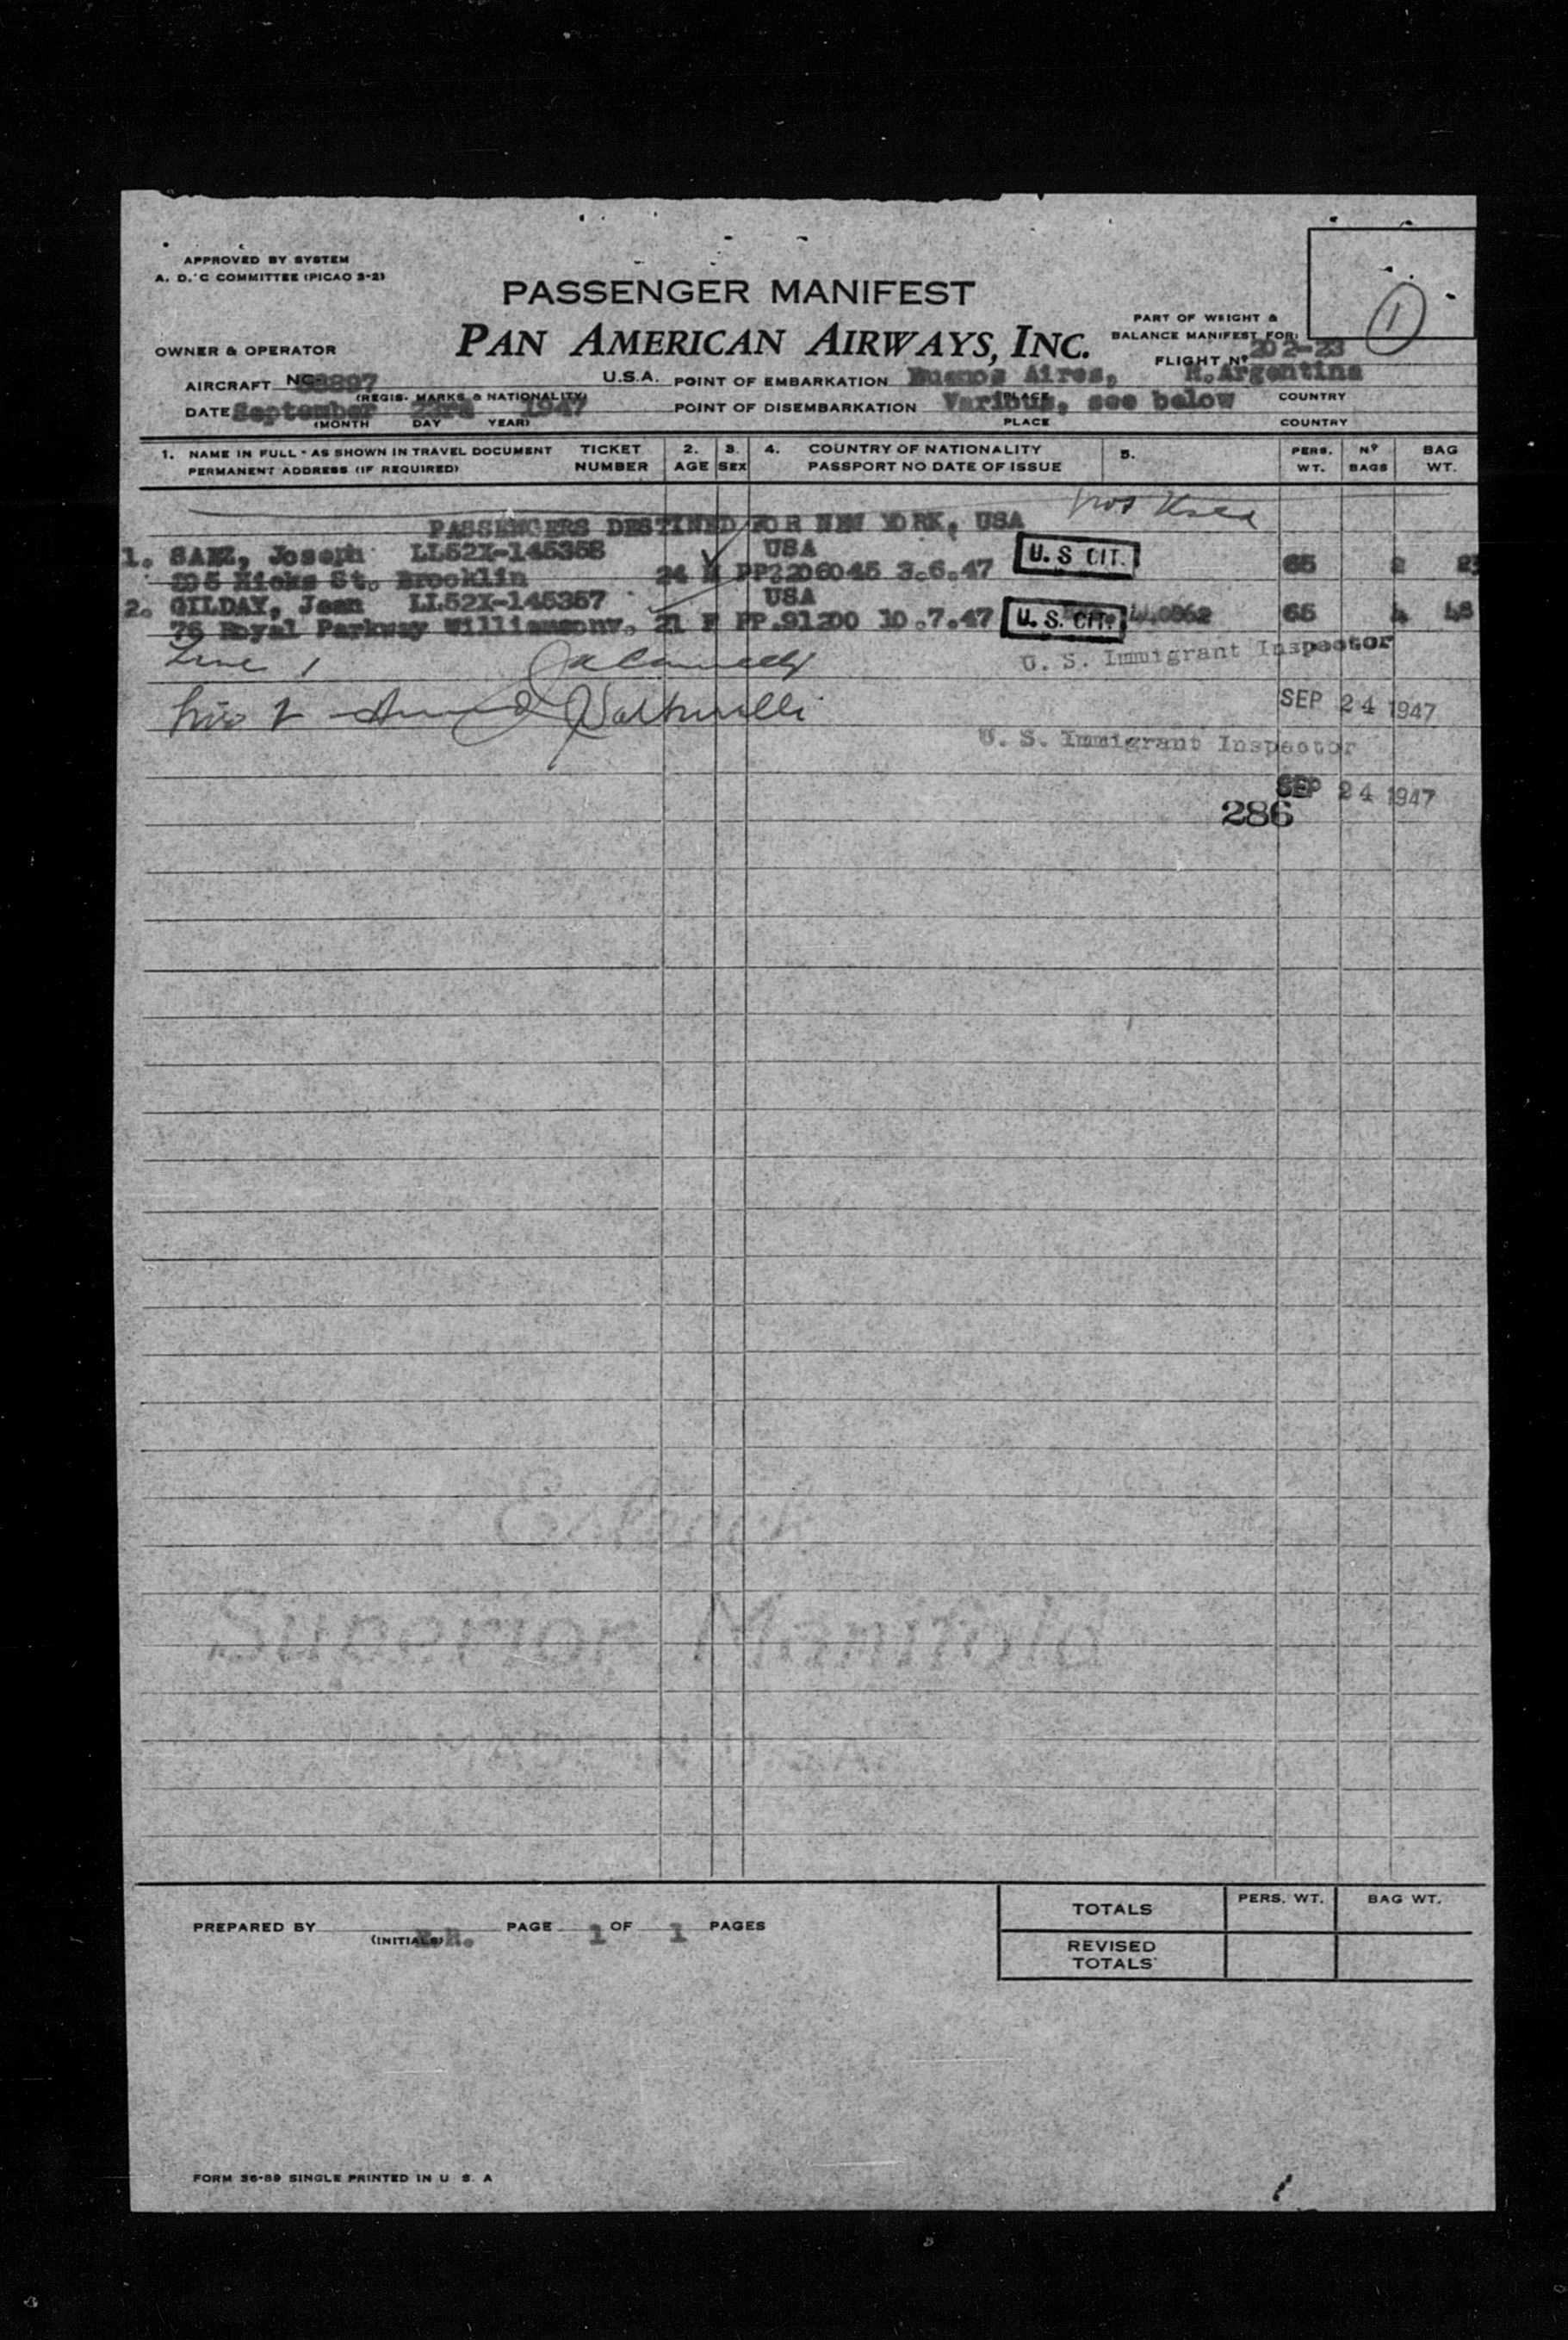 APPROVED BY SYSTEM
A. D. C COMMITTEE (PICAO 3-2)
1
PASSENGER MANIFEST
PAN AMERICAN AIRWAYS, INC.
PART OF WEIGHT &
BALANCE MANIFEST FOR:
FLIGHT Nº 202-23
OWNER & OPERATOR
AIRCRAFT U.S.A. POINT OF EMBARKATION Buenos Aires, R.Argentina
(REGIS. MARKS & NATIONALITY) PLACE COUNTRY
DATE September 23rd 1947 POINT OF DISEMBARKATION Various, see below
(MONTH DAY YEAR) PLACE COUNTRY
1. NAME IN FULL - AS SHOWN IN TRAVEL DOCUMENT TICKET 2. 3. 4. COUNTRY OF NATIONALITY 5. PERS. Nº BAG
PERMANENT ADDRESS (IF REQUIRED) NUMBER AGE SEX PASSPORT NO DATE OF ISSUE WT. BAGS WT.
Not Used
PASSENGERS DESTINED FOR NEW YORK, USA
1. Joseph LL52X-145358 USA U. S CIT.
Hicks St. Brooklin 24 M PP2206045 3.6.47 65 2
2. GILDAY, Jean LL52X-145357 USA
76 Royal Parkway Williamsonv. 21 F PP.91200 10.7.47 U. S. CIT. 65 4
Line 1 U. S. Immigrant Inspector
SEP 24 1947
U. S. Immigrant Inspector
SEP 24 1947
286
Superior Manifold
MADE IN U.S.A.
PREPARED BY PAGE 1 OF 1 PAGES
(INITIALS)
TOTALS PERS. WT. BAG WT.
REVISED
TOTALS
FORM 36-89 SINGLE PRINTED IN U S. A